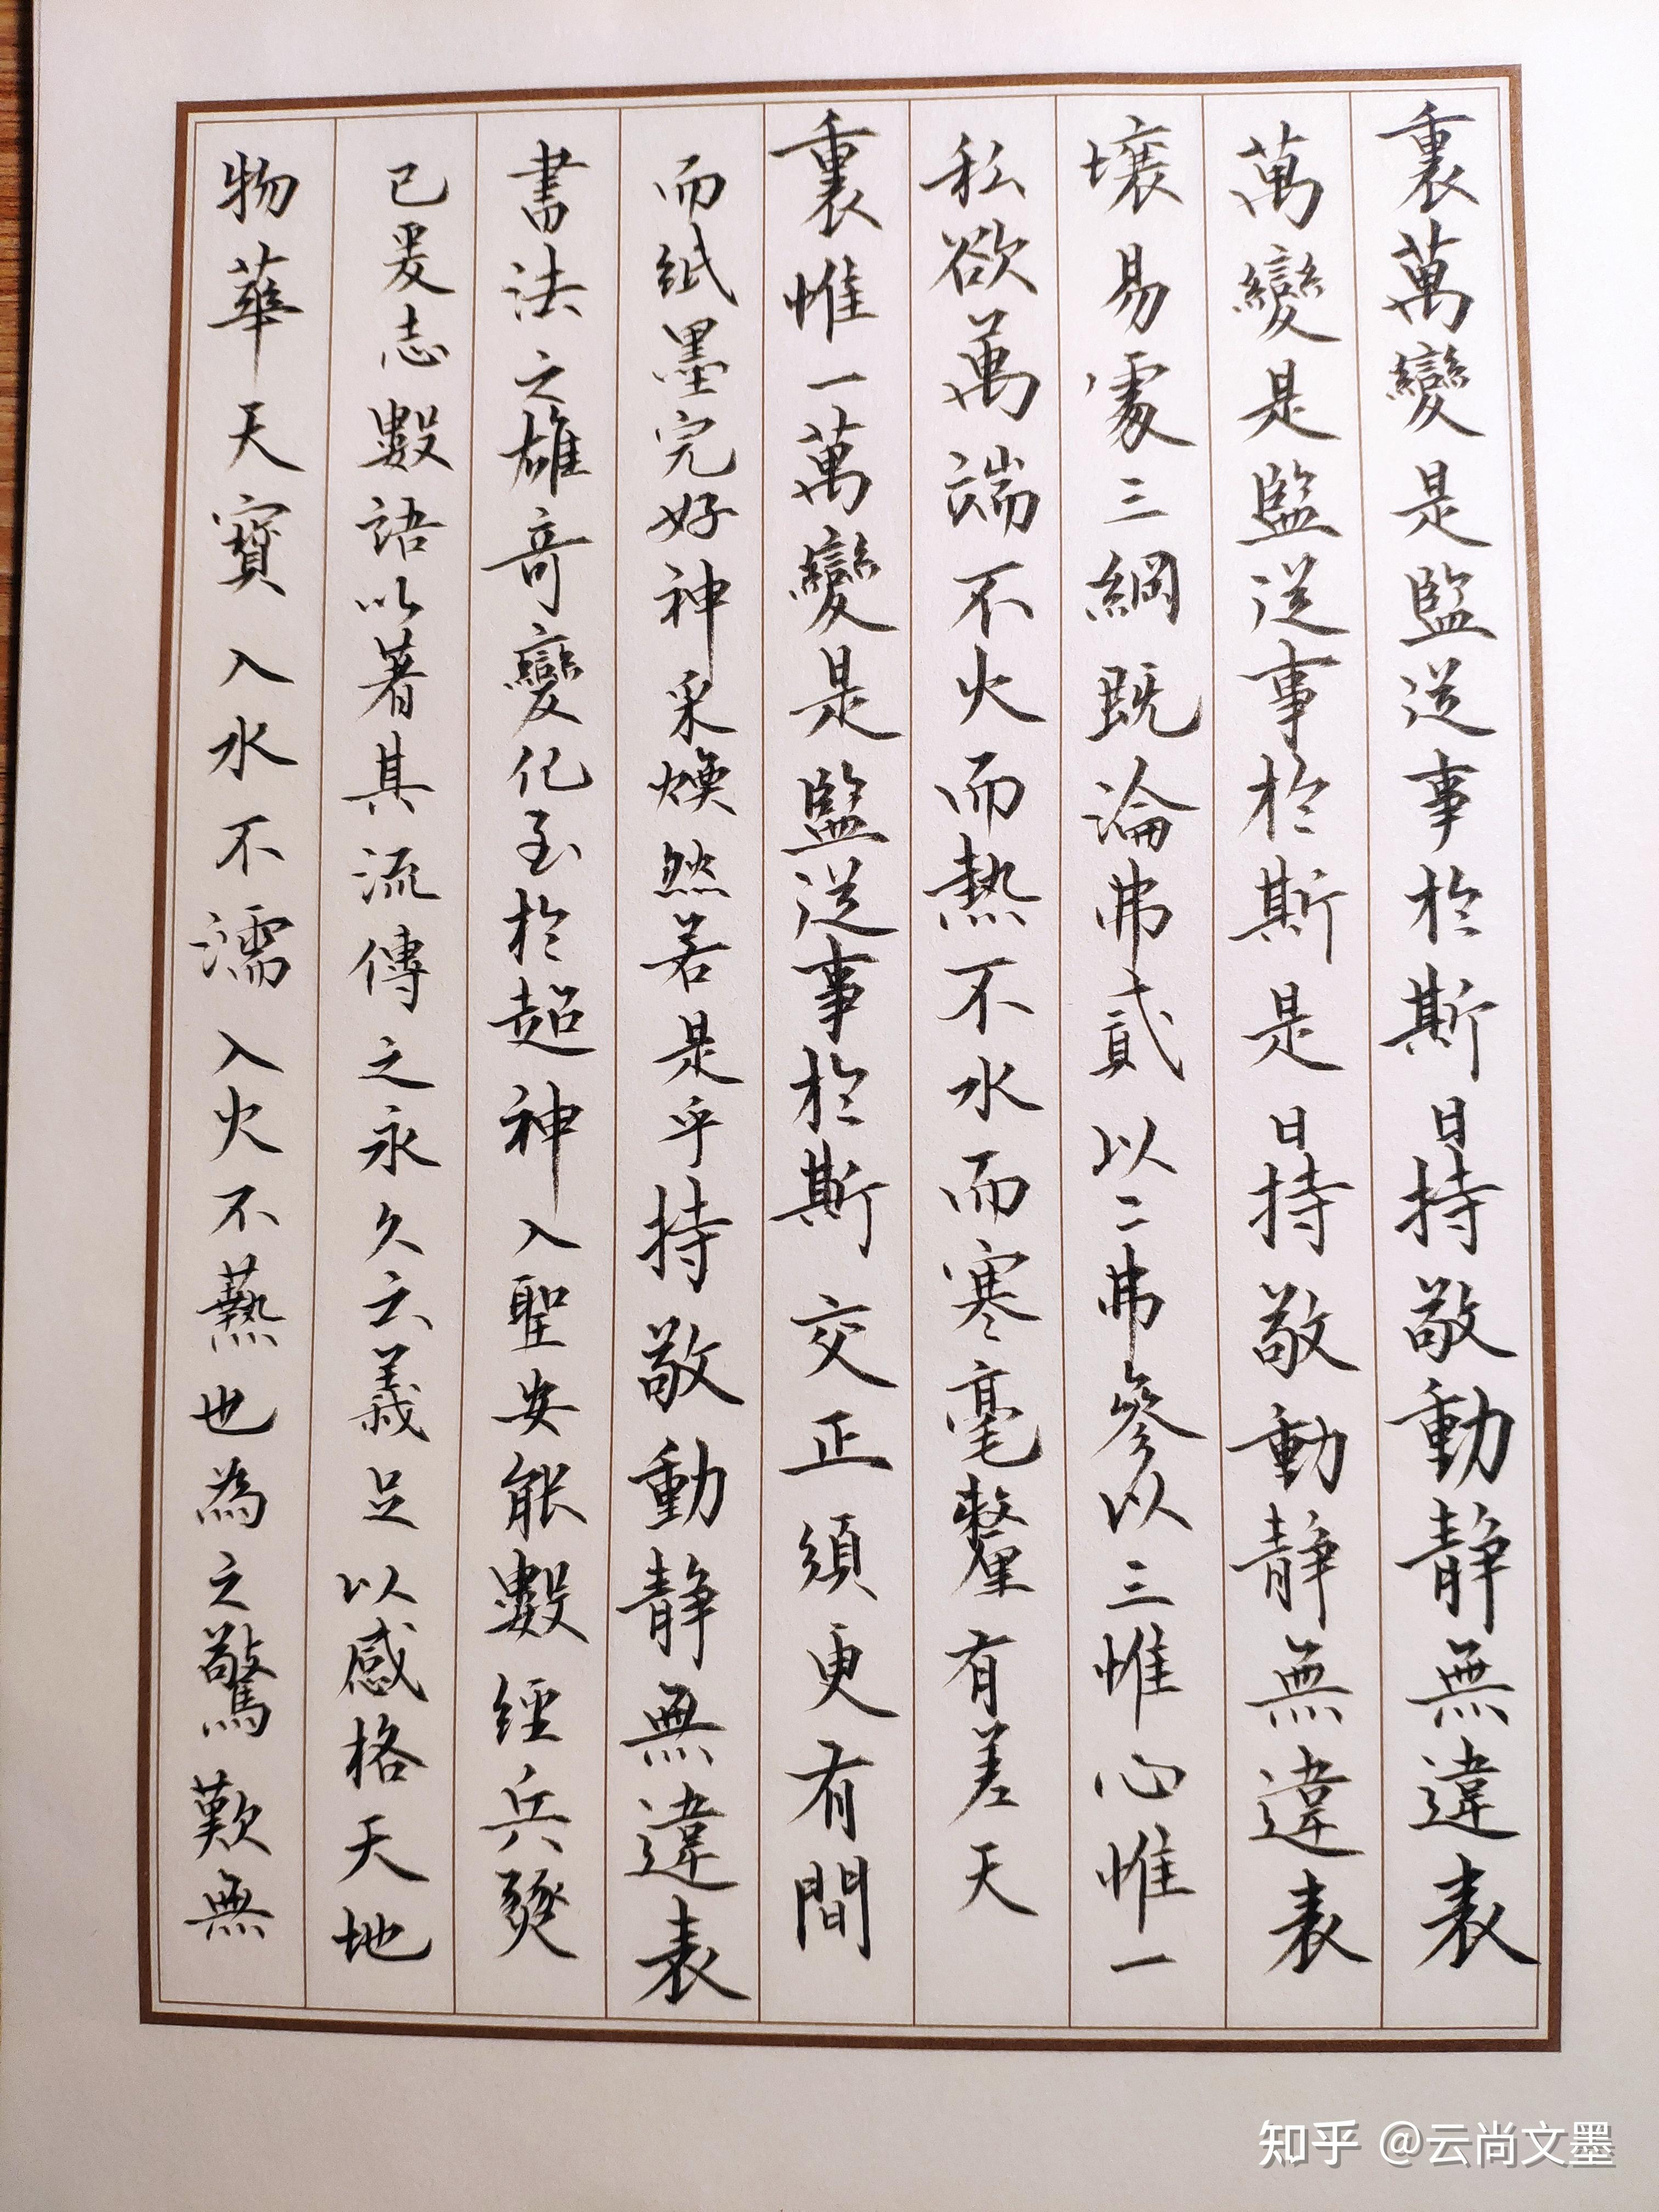 裏萬變是監從事於斯是曰持敬動靜無違表
萬變是監從事於斯是曰持敬動靜無違表
壤易處三綱既淪弗貳以二弗參以三惟心惟一
私欲萬端不火而熱不水而寒毫釐有差天
裏惟一萬變是監從事於斯交正須更有間
而紙墨完好神采煥然若是乎持敬動靜無違表
書法之雄奇變化至於超神入聖安能數經兵燹
已爰志數語以著其流傳之永久云義足以感格天地
物華天寶入水不濡入火不爇也為之驚歎無
知乎 @云尚文墨